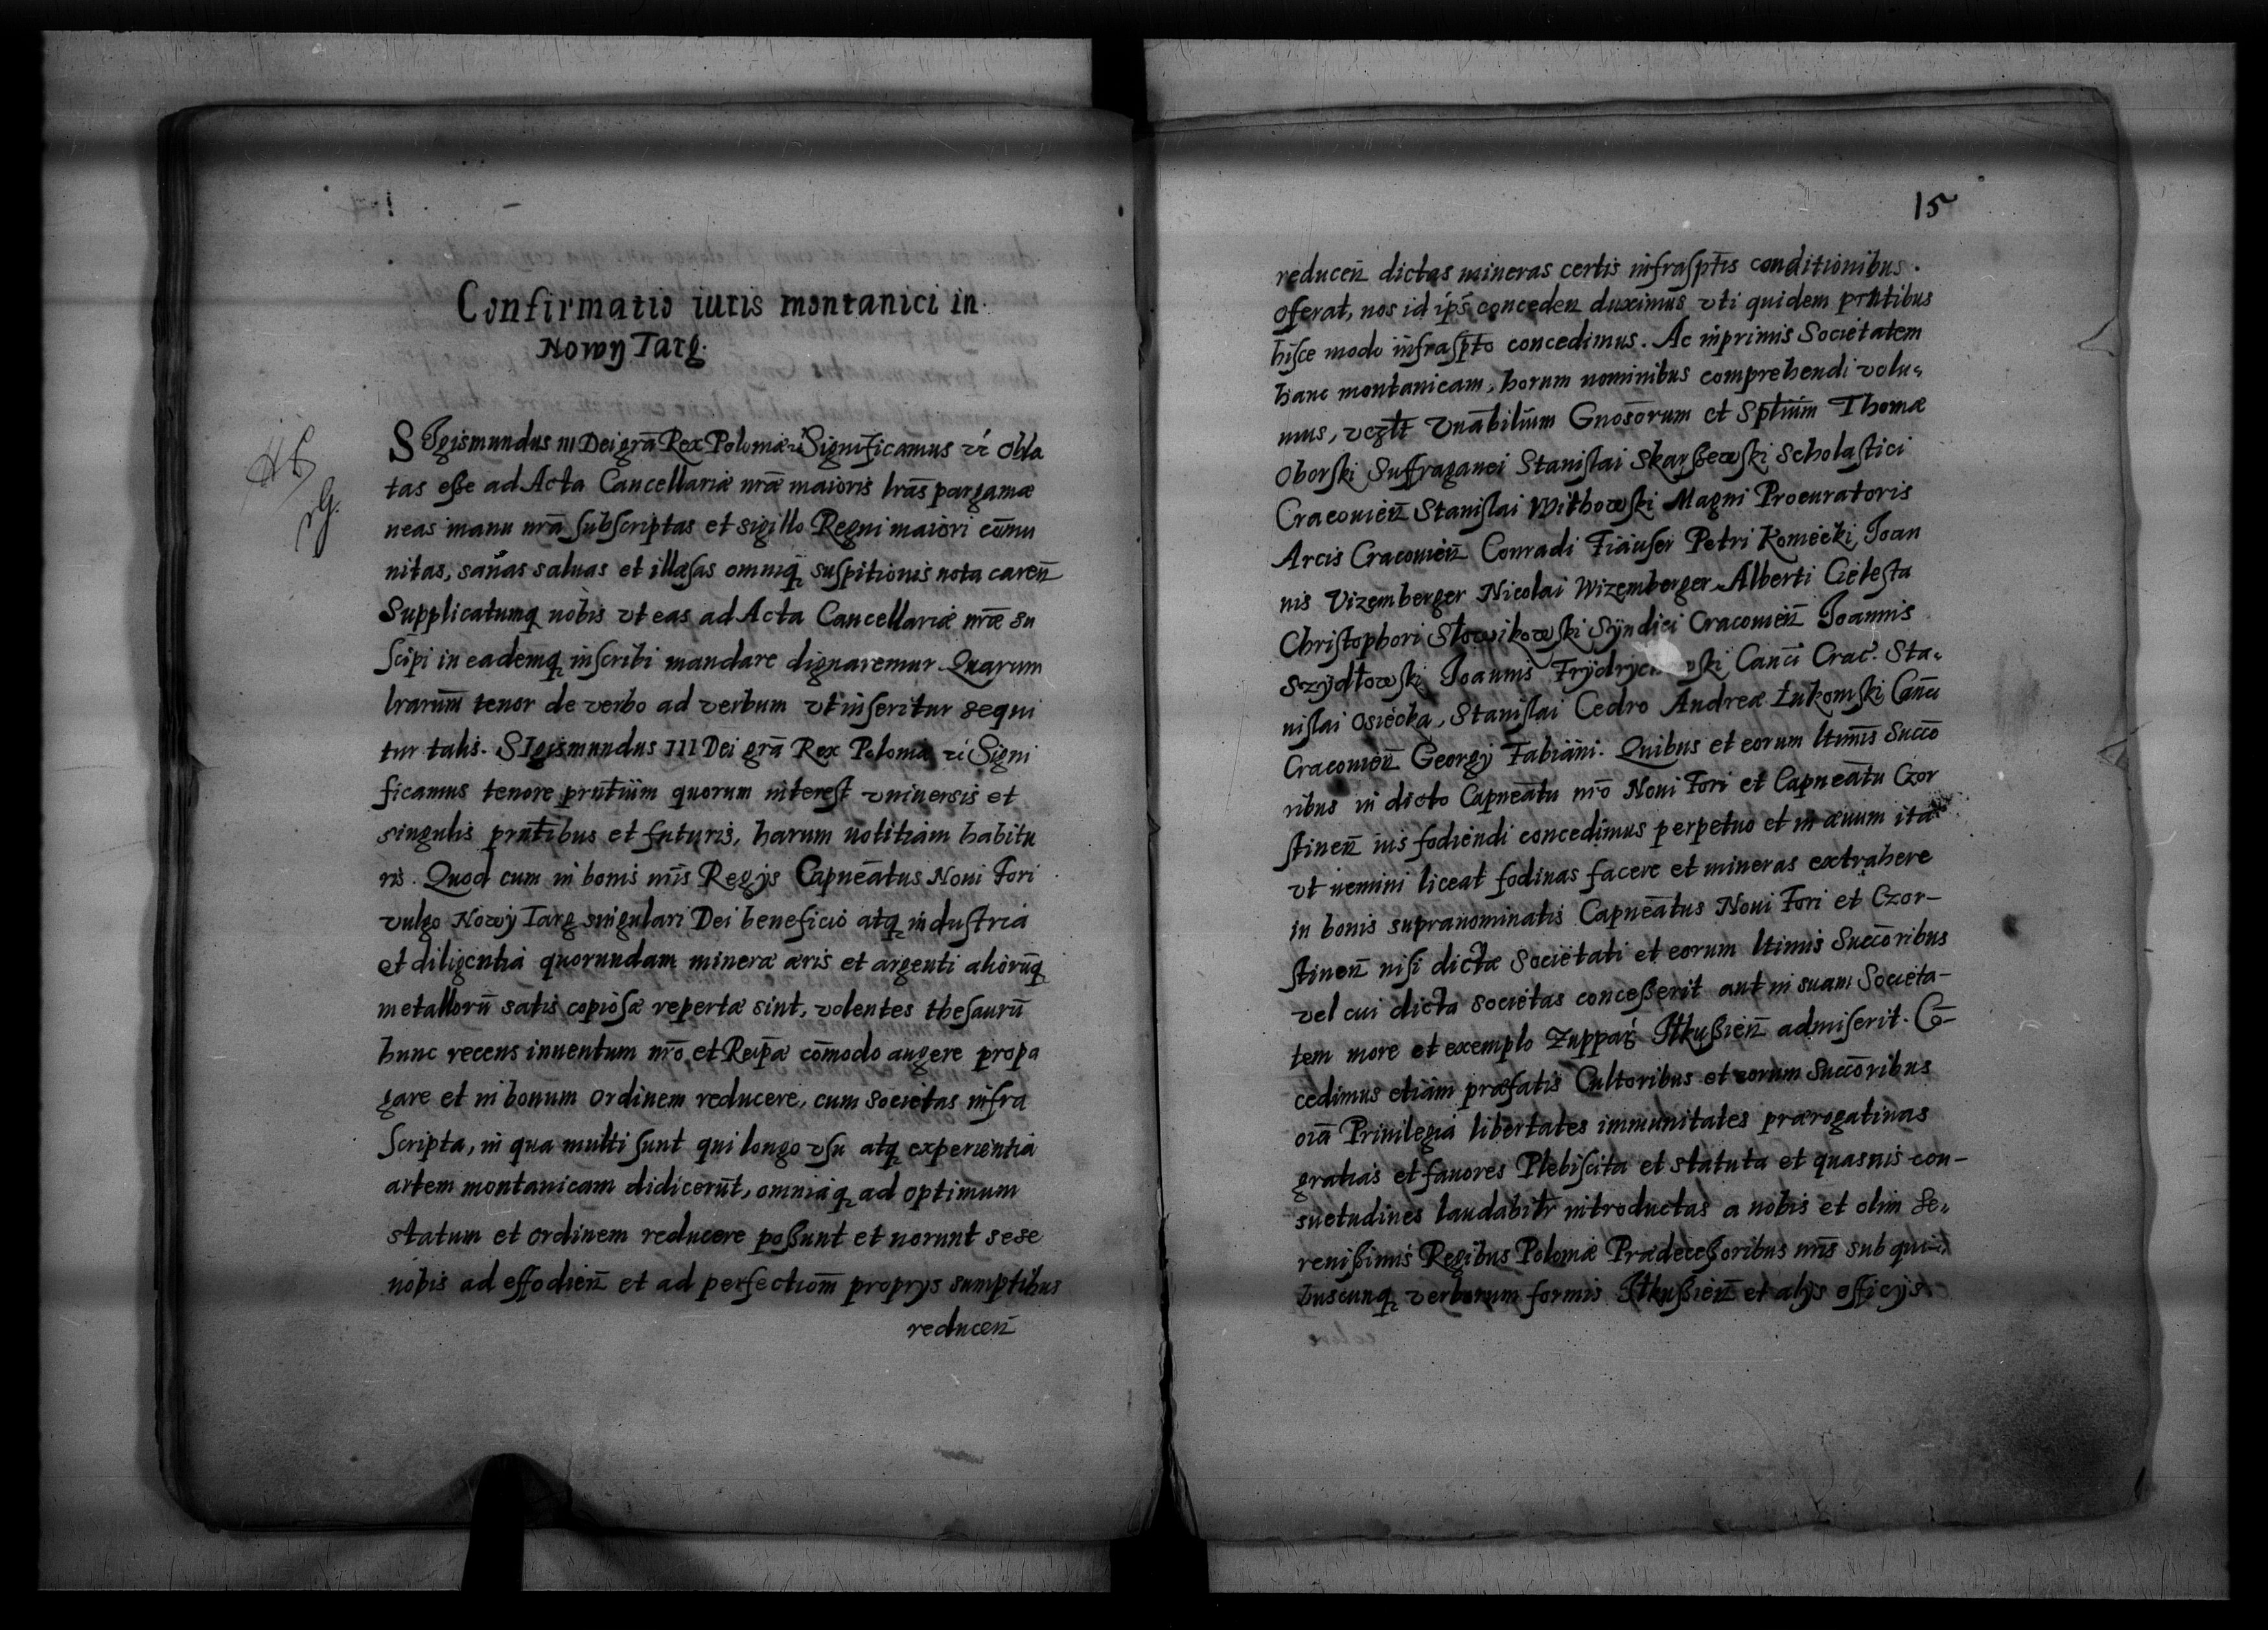 Confirmatio iuris montanici in
Nowy Targ.
SIgismundus III Dei grā Rex Poloniæ Significamus Obla
tas eße ad Acta Cancellariæ nrǣ maioris lrās pargamæ
neas manu nrā ſubſcriptas et sigillo Regni maiori cōmu
nitas, sanas saluas et illæſas omniq́ suſpitionis nota careñ
Supplicatumq nobis vt eas ad Acta Cancellariæ nrǣ su
ſcipi in eademq inſcribi mandare dignaremur Quarum
lrarum̄ tenor de verbo ad verbum vt inſeritur sequi
tur talis. SIgismundus III Dei grā Rex Poloniæ Signi
ficamus tenore prn̄tium quorum intereſt vniuersis et
singulis prn̄tibus et futuris, harum notitiam habitu
ris. Quod cum in bonis nr̄is Regijs Capneātus Noui Fori
vulgo Nowy Targ singulari Dei beneficio atq induſtria
et diligentia quorundam mineræ æris et argenti aliorūq
metallorū satis copioſæ repertæ sint, volentes theſaurū
hunc recens inuentum nrō et Reip̄æ cōmodo augere propa
gare et in bonum ordinem reducere, cum societas infra
ſcripta, in qua multi ſunt qui longo vſu atq experientia
artem montanicam didicerūt, omniaq ad optimum
statum et ordinem reducere poßunt et norunt sese
nobis ad effodieñ et ad perfectiom̄ proprijs sumptibus
reduceñ
15
reduceñ dictas mineras certis infraſptīs conditionibus.
oferat, nos id ipſ̄ conceden duximus vti quidem prn̄tibus
hiſce modo infraſptō concedimus. Ac inprimis Societatem
hanc montanicam, horum nominibus comprehendi volu-
mus, vczlt̄ Vnābilium Gnosōrum et Sptlium̄ Thomæ
Oborſki Suffraganei Staniſlai Skarßewſki Scholaſtici
Cracouieñ Staniſlai Withowſki Magni Procuratoris
Arcis Cracouieñ Conradi Petri Koniecki, Joan
nis Vizemberger Nicolai Wizemberger Alberti Cieleſta
Chriſtophori Słowikowſki Syndici Cracouieñ Joannis
Szydłowſki Joannis Canc̄i Crac. Sta-
niſlai Osiecka, Staniſlai Cedro Andreæ Łukomſki Canc̄i
Cracouieñ Georgy Fabiani. Quibus et eorum ltimīs Succō
ribus in dicto Capneātu nrō Noui Fori et Capneātu Czor
ſtineñ ius fodiendi concedimus perpetuo et in æuum ita
vt nemini liceat fodinas facere et mineras extrahere
in bonis supranominatis Capneātus Noui Fori et Czor-
ſtineñ niſi dictæ Societati et eorum ltimis Succōribus
vel cui dicta societas conceßerit aut in suam Societa-
tem more et exemplo Zuppar̄ Ilkußieñ admiſerit. Cō-
cedimus etiam præfatis Cultoribus et eorum Succōribus
oīa Priuilegia libertates immunitates prærogatiuas
gratias et fauores Plebiſcita et statuta et quasuis con-
suetudines laudabilr̄ introductas a nobis et olim Se-
renißimis Regibus Poloniæ Prædeceßoribus nr̄is sub qui-
buscunq verborum formis Ilkußieñ et alijs officijs